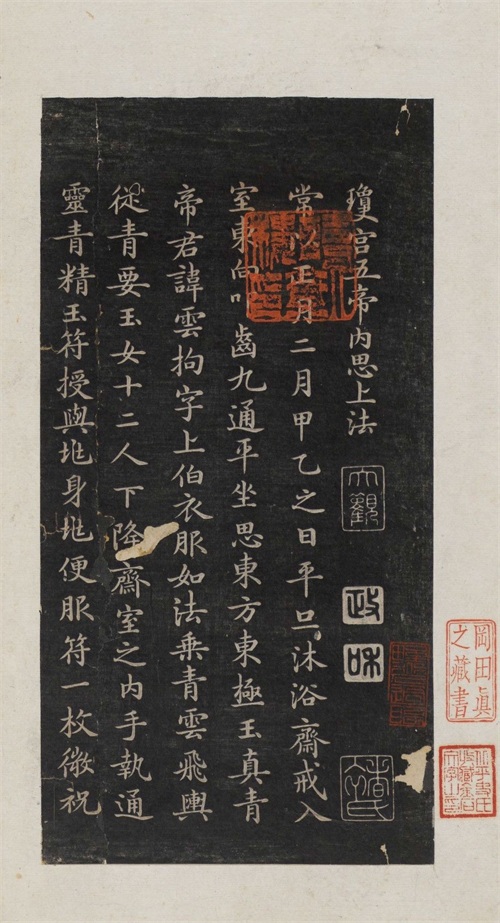 岡田真
之藏書
瓊宫五帝内思上法
大觀
政和
常以正月二月甲乙之日平旦沐浴齋戒入
室東向叩齒九通平坐思東方東極玉真青
帝君諱雲拘字上伯衣服如法乘青雲飛輿
從青要玉女十二人下降齋室之内手執通
靈青精玉符授與兆身兆便服符一枚微祝